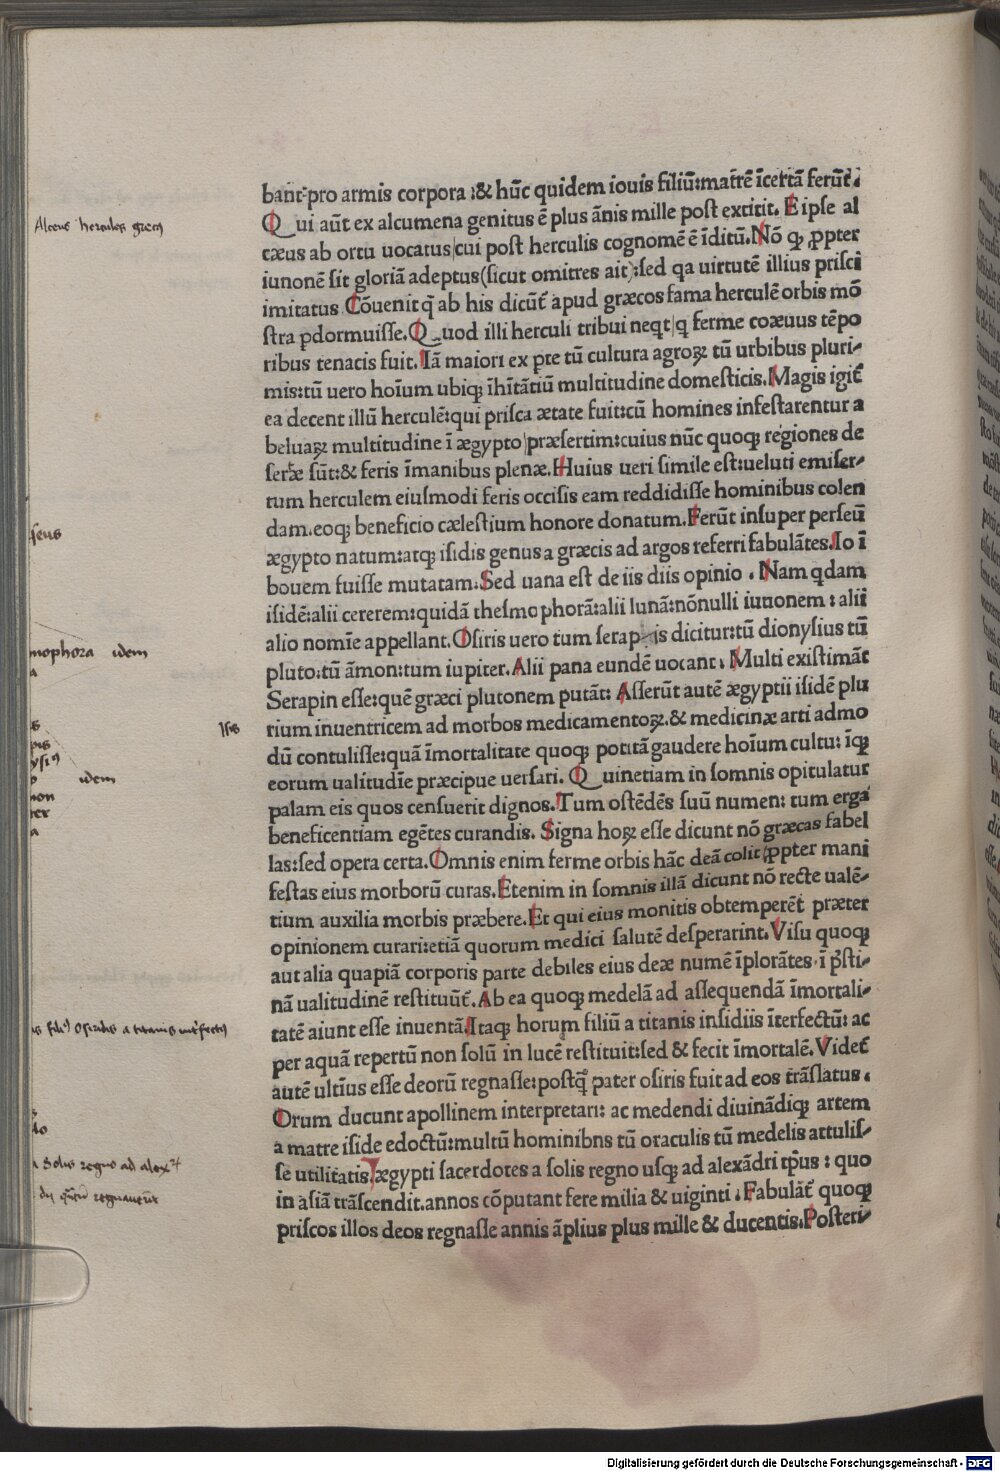 bant̄·pro armis corpora :& hūc quidem iouis filiū:mat̄rē īcertā ferūt̄.
Qui aūt ex alcumena genitus ē plus ānis mille post extitit. Eipse al
cæus ab ortu uocatus|cui post herculis cognomē ē īditū.Nō ꝙ ꝓpter
iunonē sit gloriā adeptus(sicut omitres ait):sed qa uirtutē illius prisci
imitatus Cōuenit q̄ ab his dicūt̄ apud græcos fama herculē orbis mō
stra ꝑdormuisse.Quod illi herculi tribui neqt|q ferme coæuus tēpo
ribus tenacis fuit.Iā maiori ex pte tū cultura agroꝝ tū urbibus pluri-
mis:tū uero hoīum ubiqꝫ īhītātiū multitudine domesticis.Magis igit̄
ea decent illū herculē:qui prisca ætate fuit:cū homines infestarentur a
beluaꝝ multitudine ī ægypto|præsertim:cuius nūc quoqꝫ regiones de
sertæ sūt:& feris īmanibus plenæ.Huius ueri simile est:ueluti emiser-
tum herculem eiusmodi feris occisis eam reddidisse hominibus colen
dam.eoqꝫ beneficio cælestium honore donatum.Ferūt insuper perseū
ægypto natum:atqꝫ isidis genus a græcis ad argos referri fabulātes.Io ī
bouem fuisse mutatam.Sed uana est de iis diis opinio . Nam qdam
isidē:alii cererem:quidā thesmo phorā:alii lunā:nōnulli iunonem : alii
alio nomīe appellant.Osiris uero tum serapis dicitur:tū dionysius tū
pluto:tū āmon:tum iupiter.Alii pana eundē uocant. Multi existimāt
Serapin esse:quē græci plutonem putāt: Asserūt autē ægyptii isidē plu
rium inuentricem ad morbos medicamentoꝝ.& medicinæ arti admo
dū contulisse:quā īmortalitate quoqꝫ potitā gaudere hoīum cultu: īqꝫ
eorum ualitudīe præcipue uersari. Quinetiam in somnis opitulatur
palam eis quos censuerit dignos.Tum ostēdēs suū numen: tum erga
beneficentiam egētes curandis. Signa hoꝝ esse dicunt nō græcas fabel
las:sed opera certa.Omnis enim ferme orbis hāc deā colit ꝓpter mani
festas eius morborū curas.Etenim in somnis illā dicunt nō recte ualē-
tium auxilia morbis præbere.Et qui eius monitis obtemperēt̄ præter
opinionem curari:etiā quorum medici salutē desperarint.Visu quoqꝫ
aut alia quapiā corporis parte debiles eius deæ numē īplorātes·ī p̄sti-
nā ualitudinē restituūt̄.Ab ea quoqꝫ medelā ad assequendā īmortali-
tatē aiunt esse inuentā.Itaqꝫ horum filiū a titanis insidiis īterfectū: ac
per aquā repertū non solū in lucē restituit:sed & fecit īmortalē.Videt̄
autē ultīus esse deorū regnasse:postq̄ pater osiris fuit ad eos trāslatus .
Orum ducunt apollinem interpretari: ac medendi diuinādiqꝫ artem
a matre iside edoctū:multū hominibns tū oraculis tū medelis attulis-
se utilitatis.ægypti sacerdotes a solis regno usqꝫ ad alexādri tp̄us : quo
in asiā trāscendit.annos cōputant fere milia & uiginti . Fabulāt̄ quoqꝫ
priscos illos deos regnasse annis āplius plus mille & ducentis.Posteri-
Alceus hercules grecus
seus
mophora idem
a
Isis
s
pis
idem
non
ter
a
Osiridis a titanis interfectus
Solis regno ad alex
Digitalisierung gefördert durch die Deutsche Forschungsgemeinschaft - DFG